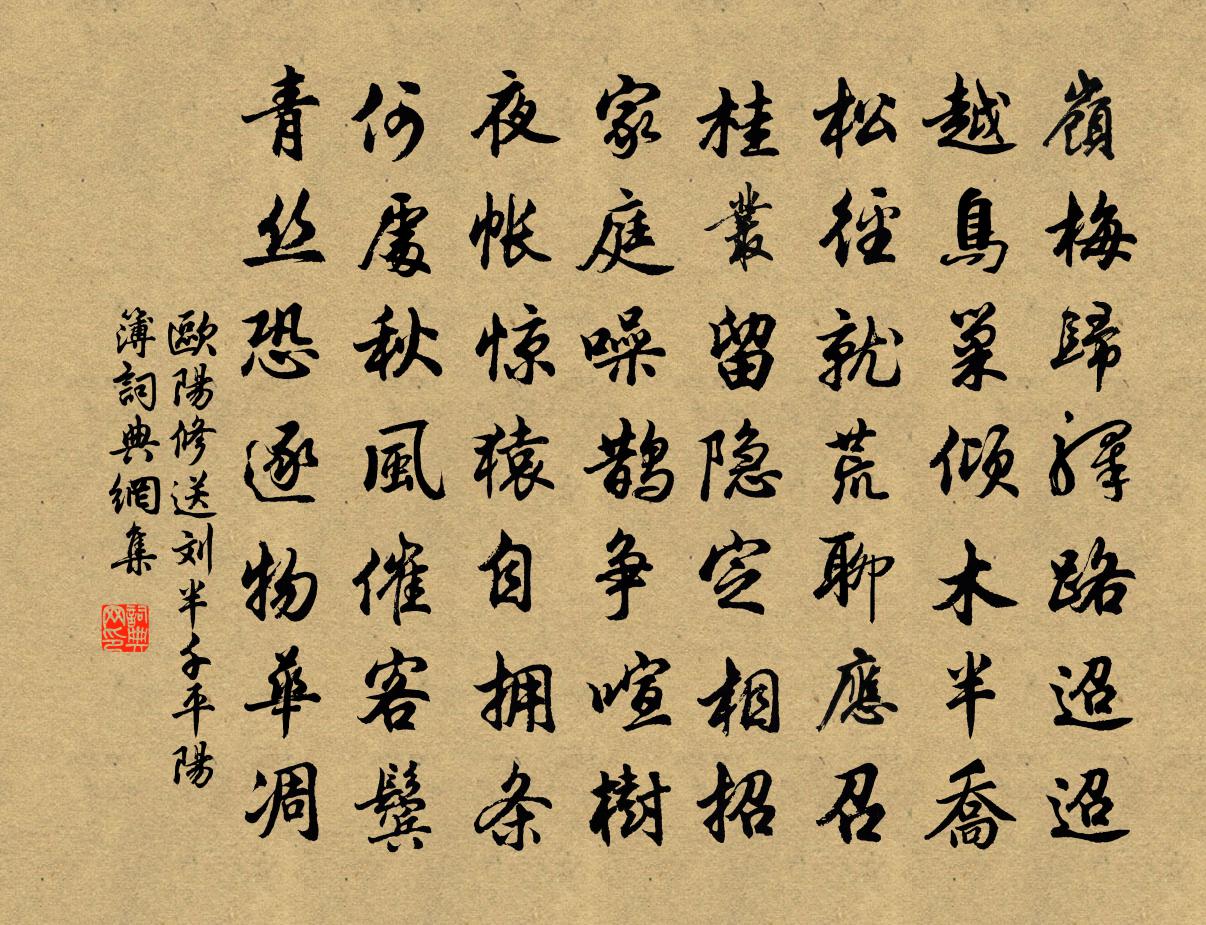 嶺梅歸驛路迢迢
越鳥巢傾木半喬
松徑就荒聊應召
桂叢留隐定相招
家庭噪鹊争喧樹
夜帐惊猿自拥条
何處秋風催客鬢
青丝恐逐物華凋
歐陽修送刘半千平陽
簿詞典網集
詞典网印